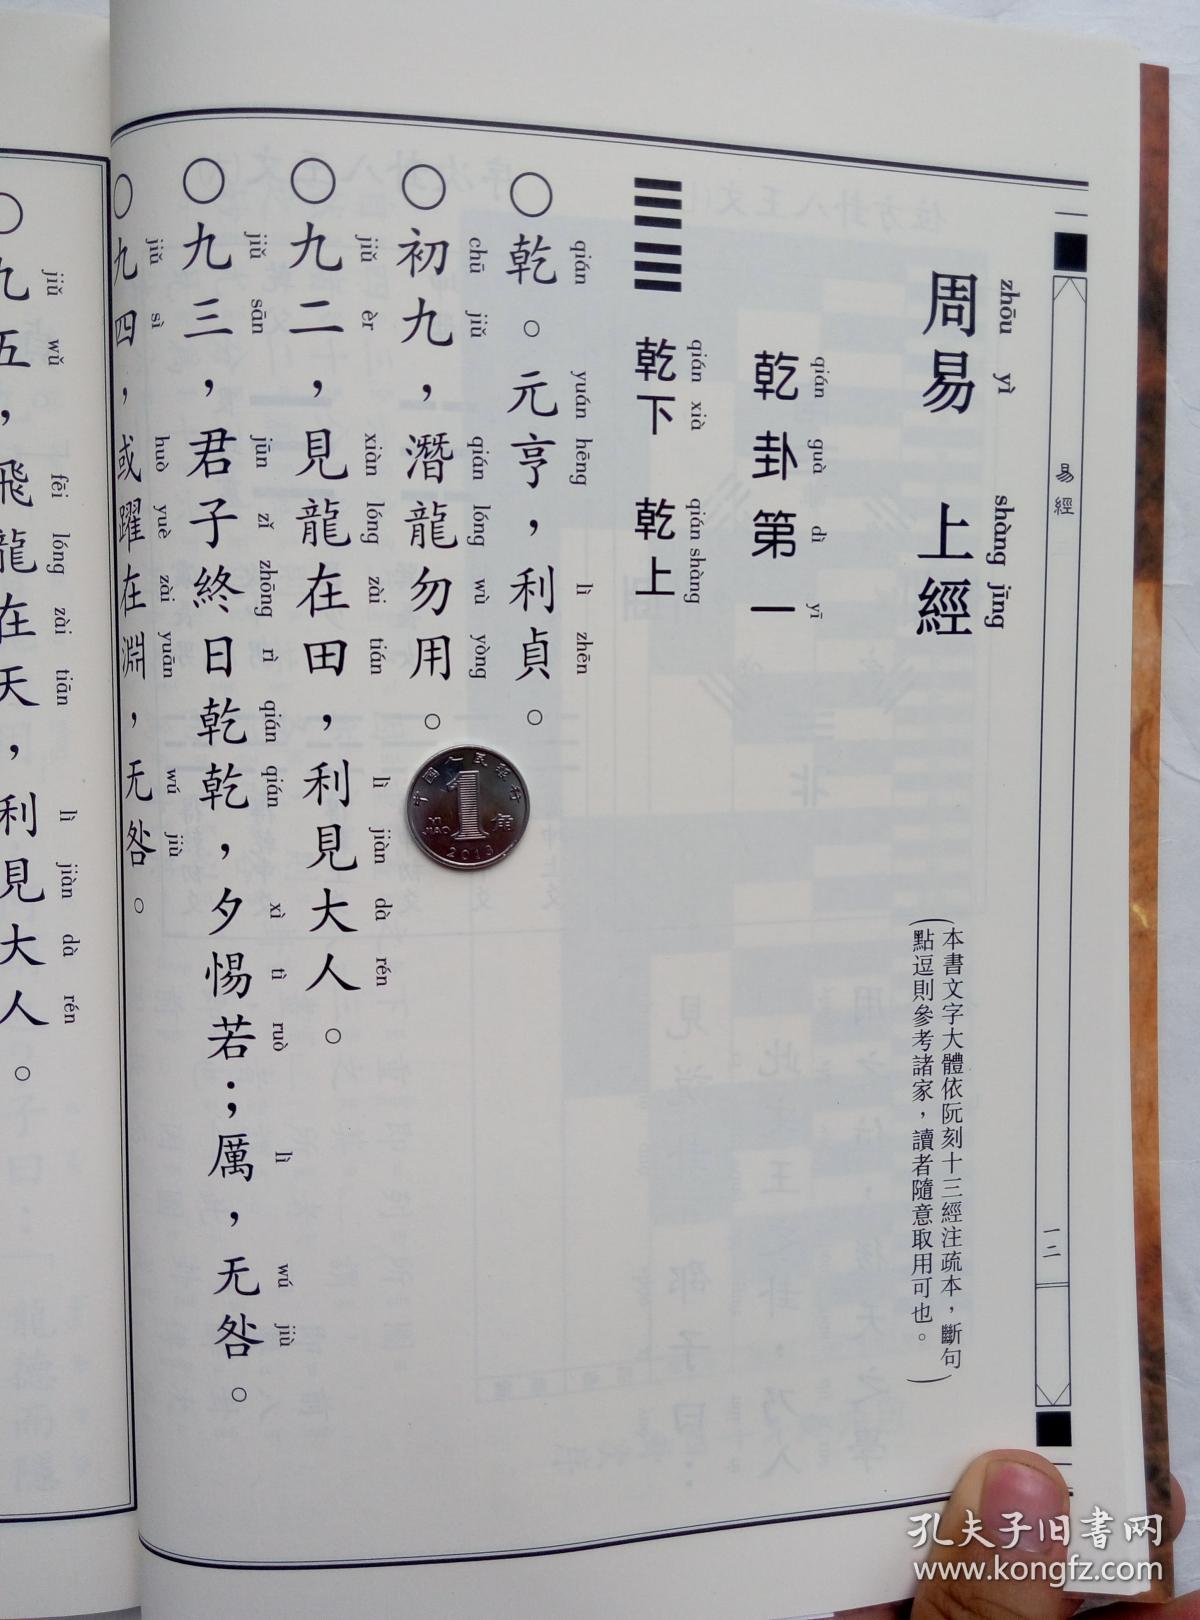 易經
一二
zhōu yì shàng jīng
周易 上經
(本書文字大體依阮刻十三經注疏本，斷句
點逗則參考諸家，讀者隨意取用可也。)
qián guà dì yī
乾卦第一
qián xià qián shàng
乾下 乾上
qián yuán hēng lì zhēn
○乾。元亨，利貞。
chū jiǔ qián lóng wù yòng
○初九，潛龍勿用。
jiǔ èr xiàn lóng zài tián lì jiàn dà rén
○九二，見龍在田，利見大人。
jiǔ sān jūn zǐ zhōng rì qián qián xì tì ruò lì wú jiù
○九三，君子終日乾乾，夕惕若；厲，无咎。
jiǔ sì huò yuè zài yuān wú jiù
○九四，或躍在淵，无咎。
jiǔ wǔ fēi lóng zài tiān lì jiàn dà rén
○九五，飛龍在天，利見大人。
中國人民銀行
1角
YI JIAO
2013
孔夫子旧书网
www.kongfz.com